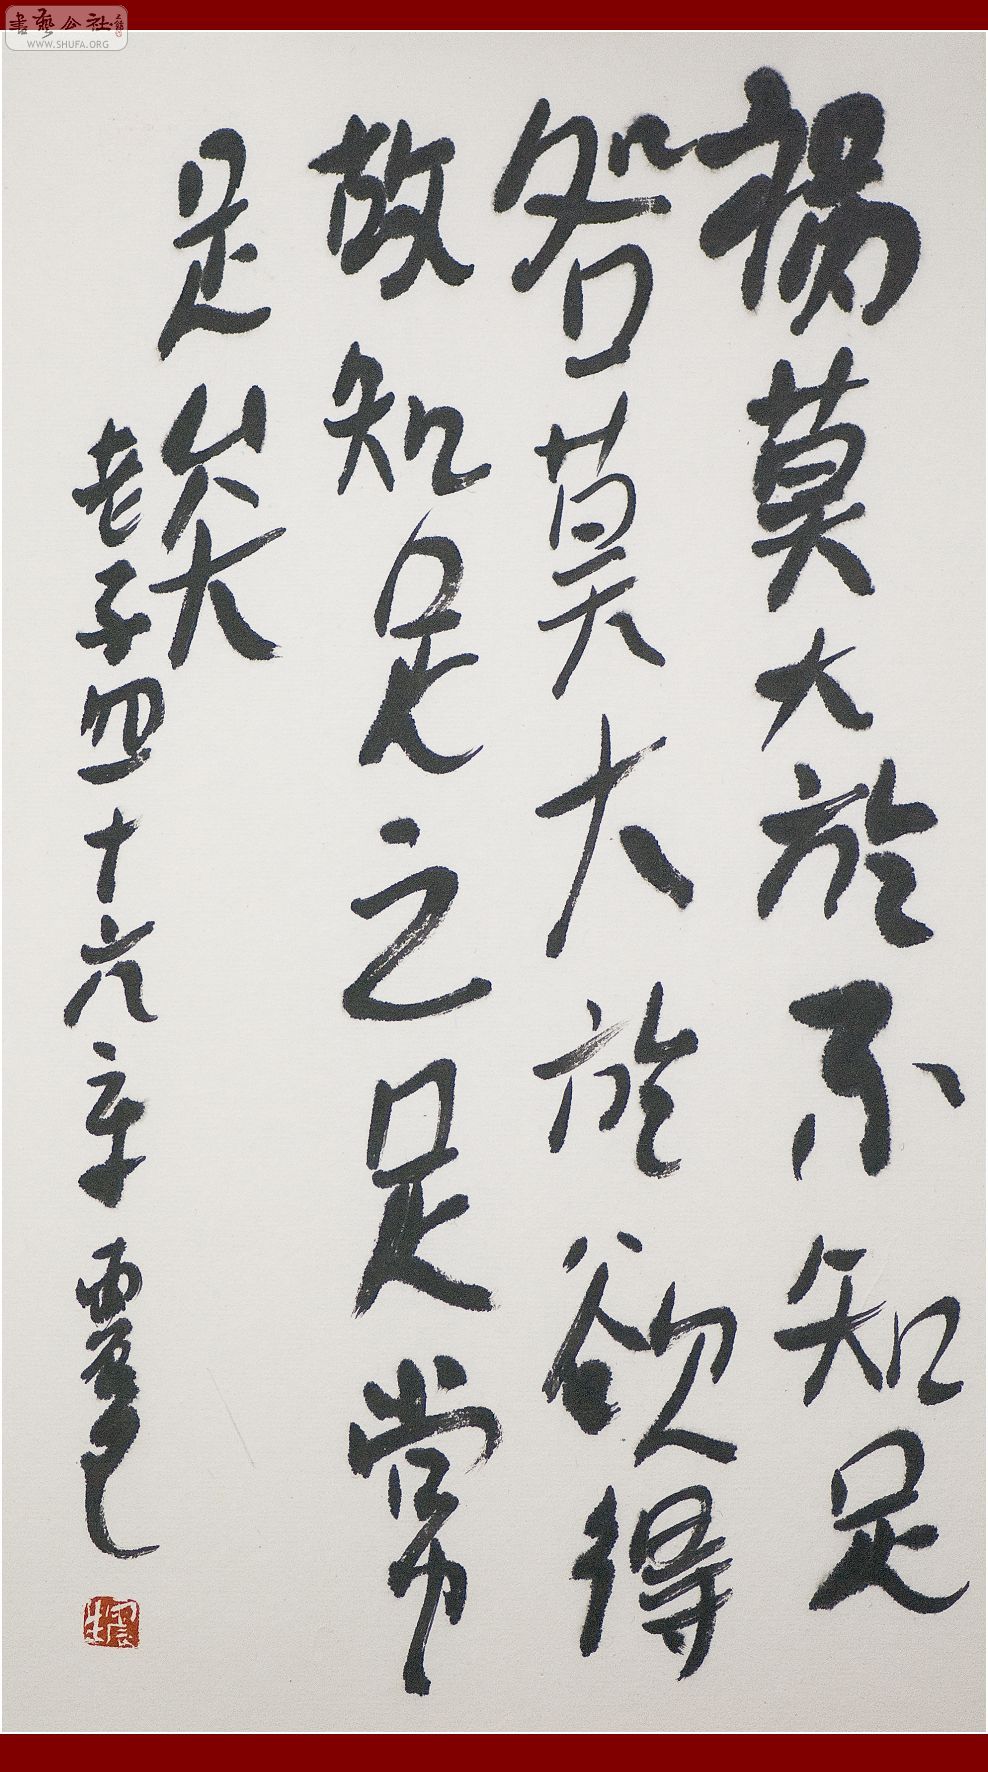 禍莫大於不知足
咎莫大於欲得
故知足之足常
足矣
老子四十六章
書藝公社
WWW.SHUFA.ORG